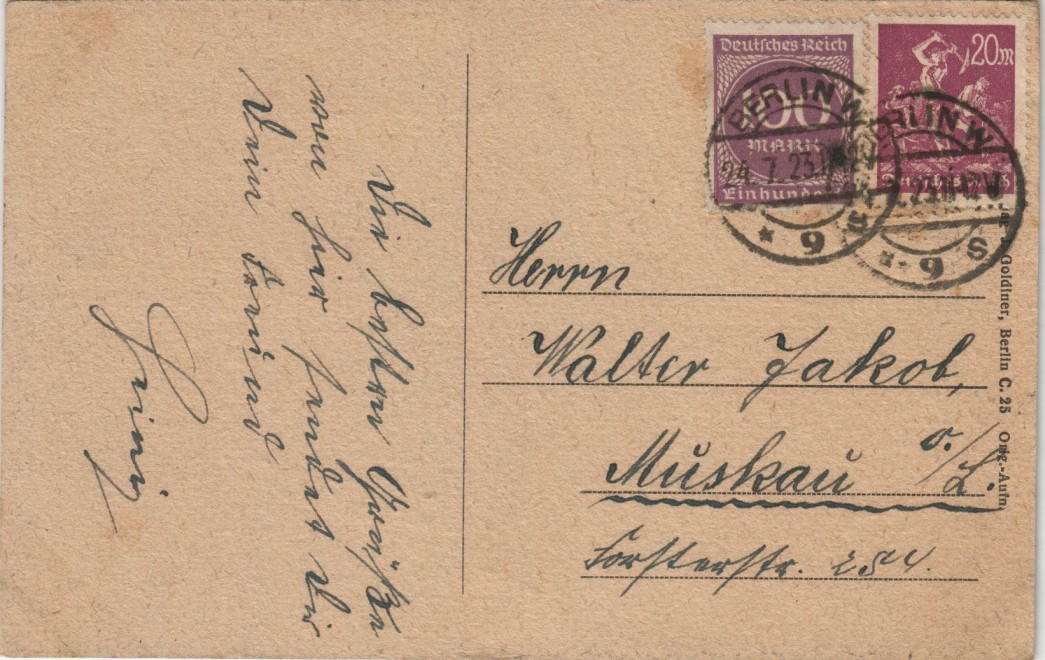 Die besten Grüße
von hier sendet Dir
Dein Freund
Heinz
Deutsches Reich
100
MARK
Einhundert
20 M
Deutsches Reich
BERLIN W
24.7.23.
* 9 s
BERLIN W
.7.23.11-12V
* * 9 s
Herrn
Walter Jakob,
Muskau o./L.
Forsterstr. 254.
Goldiner, Berlin C. 25 Orig.-Aufn.